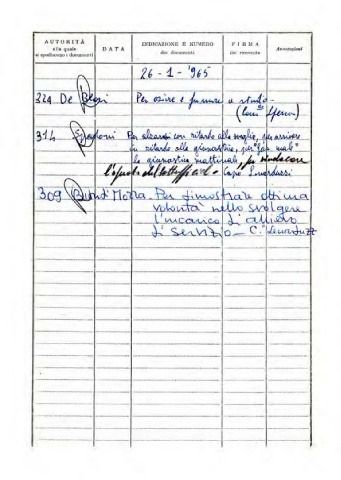 AUTORITÀ
alla quale
si spediscono i documenti
DATA
INDICAZIONE E NUMERO
dei documenti
FIRMA
per ricevuta
Annotazioni
26-1-'965
324 De Blasi Per ozire e fumare a studio-
314 Per alzarsi con ritardo alla sveglia, per arrivare
in ritardo alla ginnastica, per "far male"
la ginnastica mattinale, per sindacare
Capo Lenarduzzi
309 Motta - Per dimostrare ottima
volontà nello svolgere
l'incarico di allievo
di servizio - C.° Lenarduzz